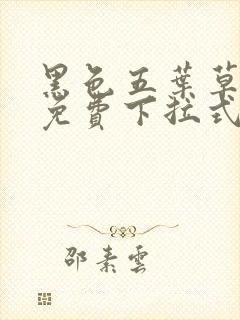 黑色五葉草
免費下拉式
邵素雲